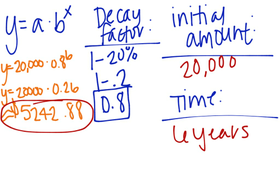 y = a · b^x
y = 20,000 · 0.8^6
y = 20000 · 0.26
5242.88
Decay
factor:
1 - 20%
1 - .2
0.8
initial
amount:
20,000
Time:
6 years